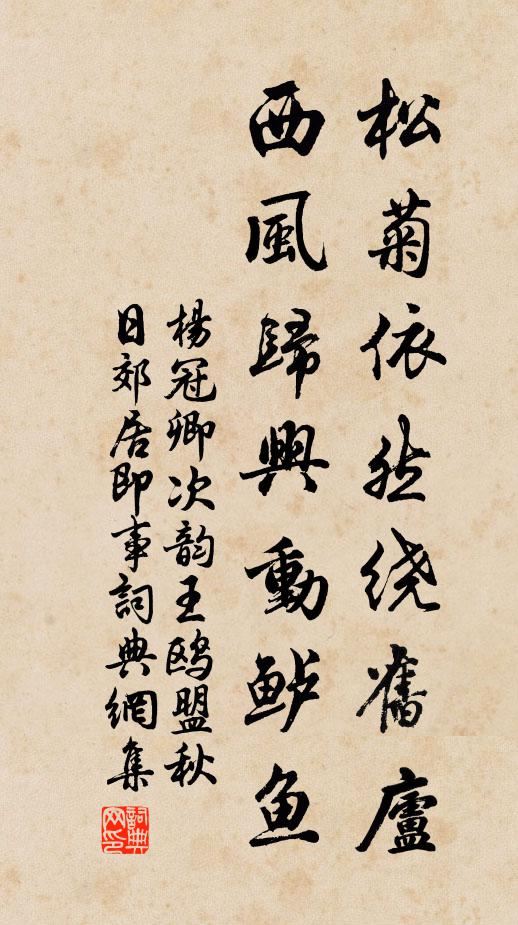 松菊依然绕舊廬
西風歸興動鲈鱼
楊冠卿次韵王鸥盟秋
日郊居即事詞典網集
詞典网印